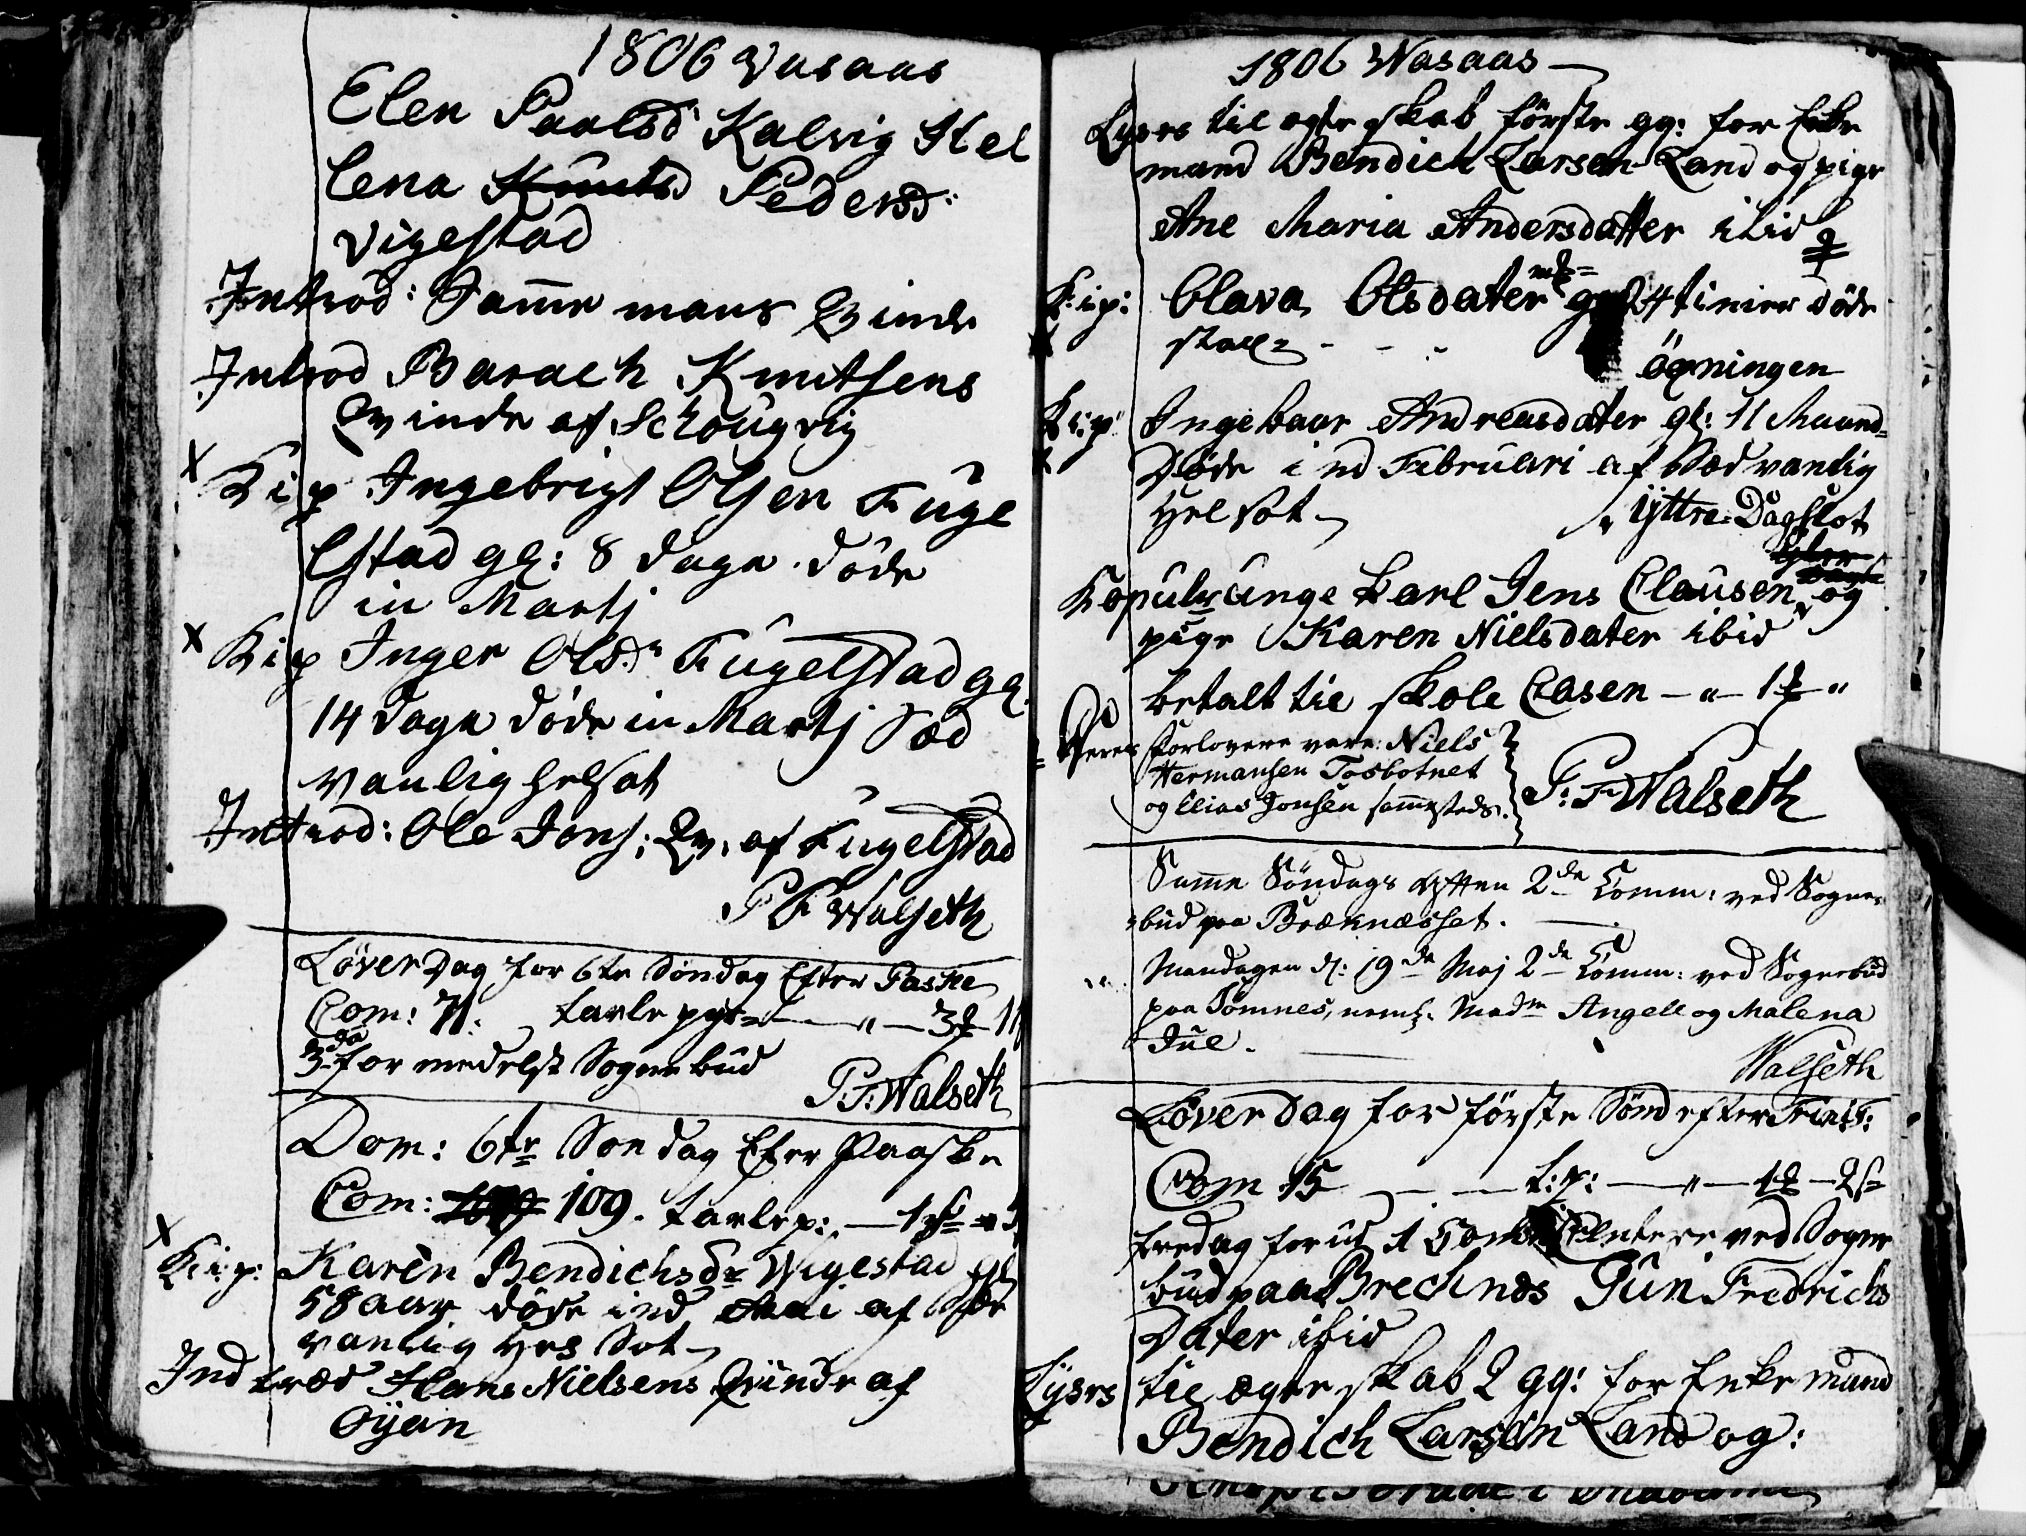 1806 Vasaas
Elen Paalsd Kalvig Hel
lena Knutsd Pedersd:
Vigestad
Introd: Samme mans Qvinde
Introd Barach Knutsens
Qvinde af Schougvig
x Kip Ingebrigt Olsen Fugl
lstad gl: 8 dage døde
in Martj
x Kip Inger Olsdr Fugelstad gl.
14 dage døde in Martj Sæd
vanlig helsot
Introd: Ole Jons: Qv. af Fugelstad
P F Walseth
Løverdag for 6te Søndag Efter Paske
Com: 71. tavle
3de for medelst Sognebud
P. F. Walseth
Dom: 6te Søndag Efter Paaske
Com: 109. tavlep:
x
K:i:p: Karen Bendichsdr Wigestad gl
58 aar døde ind Mai af Sæd
vanlig
Indtræd Hans Nielsens Qvinde af
Øyan
1806 Wasaas
Lyses til ægteskab første gg: for Enke
mand Bendich Larsen Land og pige
Ane Maria Andersdatter ibid
K:ip: Olava Olsdater 24 timer døde
øpningen
K:i:p: Ingebaar Andreasdater gl: 11 Maand
Døde ind Februari af Sædvanlig
Helsot
Yttre Dagslot
Kopul: unge karl Jens Clausen og
pige Karen Nielsdater ibid
betalt til skole Casen
Deres Forlovere vare: Niels
Hermansen Tosbotnet
og Elias Jonsen sammesteds.
P. F. Walseth
Samme Søndags Aften 2de Comm: ved Sogne
bud paa Bræknæsset.
Mandagen d: 19de Maj 2de Comm: ved Sognebud
paa Tømnes, neml. Madm Angell og Malena
Due.
Walseth
Løverdag for første Sønd efter Trinit:
Com 15 t:p:
fredag forud 1 ved Sogne
bud paa Brechnes Gun Fredrichs
Dater ibid
Lyses til ægteskab 2 gg: for Enkemand
Bendich Larsen Land og: